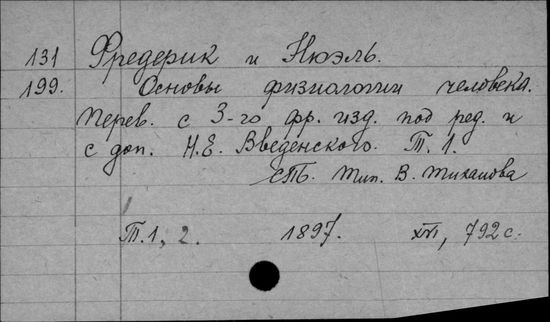 131 Фредерик и Нюэль.
199. Основы физиологии человека.
Перев. с 3-го фр. изд. под ред. и
с доп. Н.Е. Введенского. Т. 1.
СПб. Тип. В. Тиханова
Т.1, 2. 1897. XVI, 792 с.